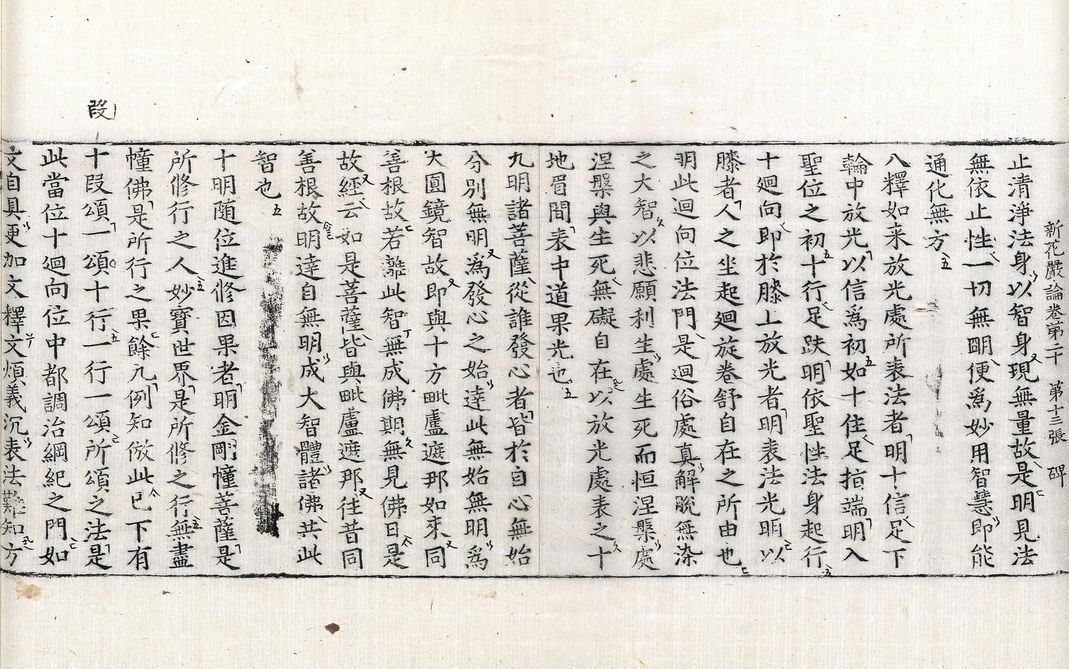 新花嚴論卷第二十　第十三張　碑
止清淨法身以智身現無量故是明見法
無依止性一切無明便爲妙用智慧即能
通化無方
八釋如来放光處所表法者明十信足下
輪中放光以信爲初如十住足指端明入
聖位之初十行足趺明依聖性法身起行
十廻向即於膝上放光者明表法光明以
膝者人之坐起廻旋卷舒自在之所由也
明此廻向位法門是廻俗處真解脫無染
之大智以悲願利生處生死而恒涅槃處
涅槃與生死無礙自在以放光處表之十
地眉間表中道果光也
九明諸菩薩從誰發心者皆於自心無始
分別無明爲發心之始達此無始無明爲
大圓鏡智故即與十方毗盧遮那如來同
善根故若離此智無成佛期無見佛日是
故經云如是菩薩皆與毗盧遮那往昔同
善根故明達自無明成大智體諸佛共此
智也
十明隨位進修因果者明金剛幢菩薩是
所修行之人妙寶世界是所修之行無盡
幢佛是所行之果餘九例知倣此已下有
段
十段頌一頌十行一行一頌所頌之法是
此當位十迴向位中都調治綱紀之門如
文自具更加文釋文煩義沉表法難知方